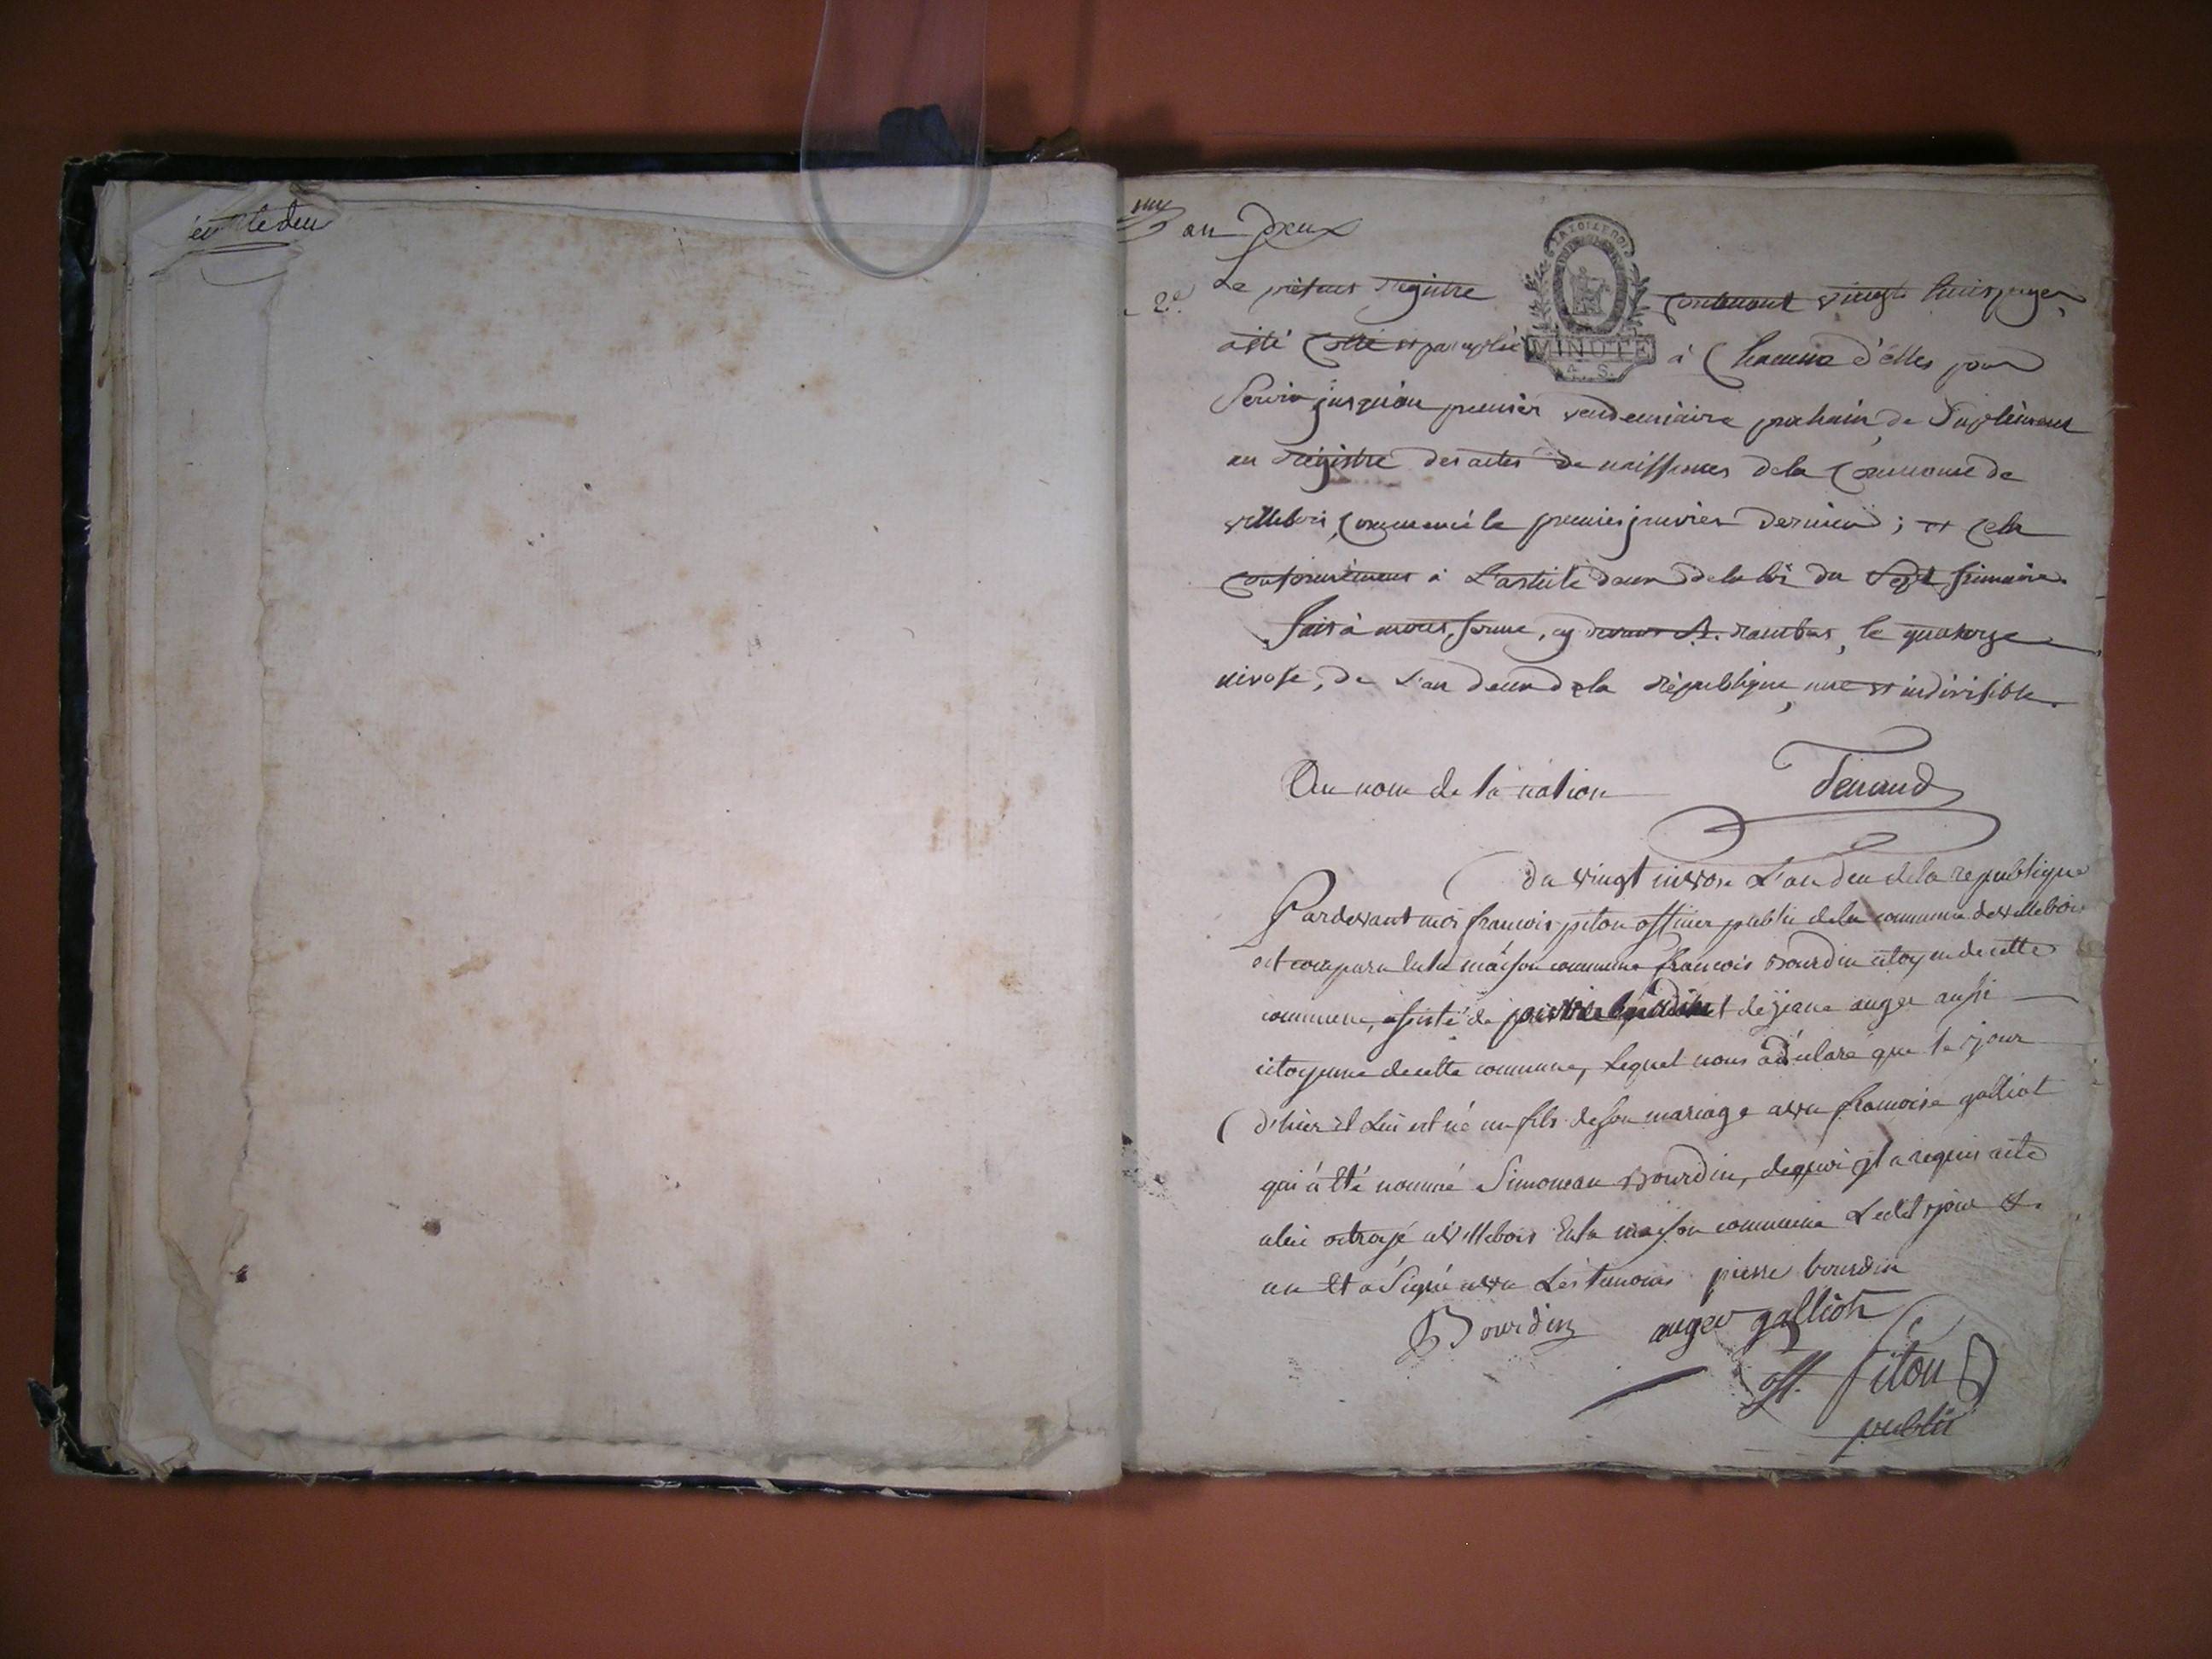 an Deux
2e
Le présent Régistre contenant vingt huit pages
MINUTE
A. S.
a été Cotté et paraphé à Chacune d'elles pour
Servir jusqu'au premier vendemiaire prochain, de Suplément
au Régistre des actes de naissances de la Commune de
villebois, Commencé le premier janvier dernier ; et Cela
Conformément à L'article deux de la loi du Sept frimaire.
le quatorze
nivose, de L'an deux de la République, une et indivisible.
Au nom de la nation
du vingt nivose L'an deu de la republique
Pardevant moi francois piton officier public de la commune de villebois
est comparu en la maison commune francois Bourdin citoyen de cette
commune, assisté de et de jeane auger aussi
citoyenne de cette commune, Lequel nous a déclaré que le jour
d'hier il Lui est né un fils de son mariage avec francoise galliot
qui a été nommé Simoneau Bourdin, de quoi il a requis acte
a lui octroyé a villebois En la maison commune Ledit jour &
an Et a Signé avec Les temoins pierre bourdin
Bourdin auger galliot
off. Piton
public